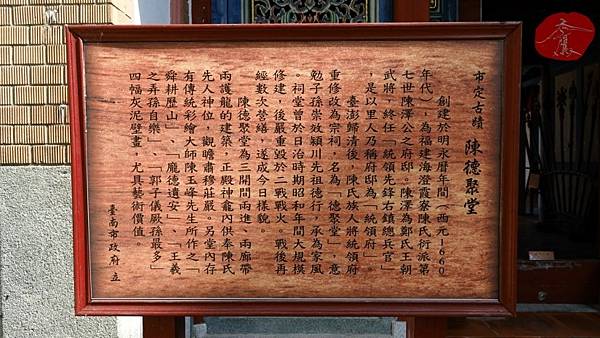 市定古蹟 陳德聚堂
創建於明永曆年間（西元1660
年代），為福建海澄霞寮陳氏衍派第
七世陳澤公之府邸。陳澤為鄭氏王朝
武將，終任「統領先鋒右鎮總兵官」
，是以里人乃稱府邸為「統領府」。
臺澎歸清後，陳氏族人將統領府
重修改為宗祠，名為「德聚堂」，意
勉子孫崇效穎川先祖德行，承為家風
。祠堂曾於日治時期昭和年間大規模
修建，後嚴重毀於二戰戰火。戰後再
經數次營繕，遂成今日樣貌。
陳德聚堂為三開間兩進、兩廊帶
兩護龍的建築，正殿神龕內供奉陳氏
先人神位，觀瞻肅穆莊嚴。另堂內存
有傳統彩繪大師陳玉峰先生所作之「
舜耕歷山」、「龐德遺安」、「王羲
之弄孫自樂」、「郭子儀厥孫最多」
四幅灰泥壁畫，尤具藝術價值。
臺南市政府 立